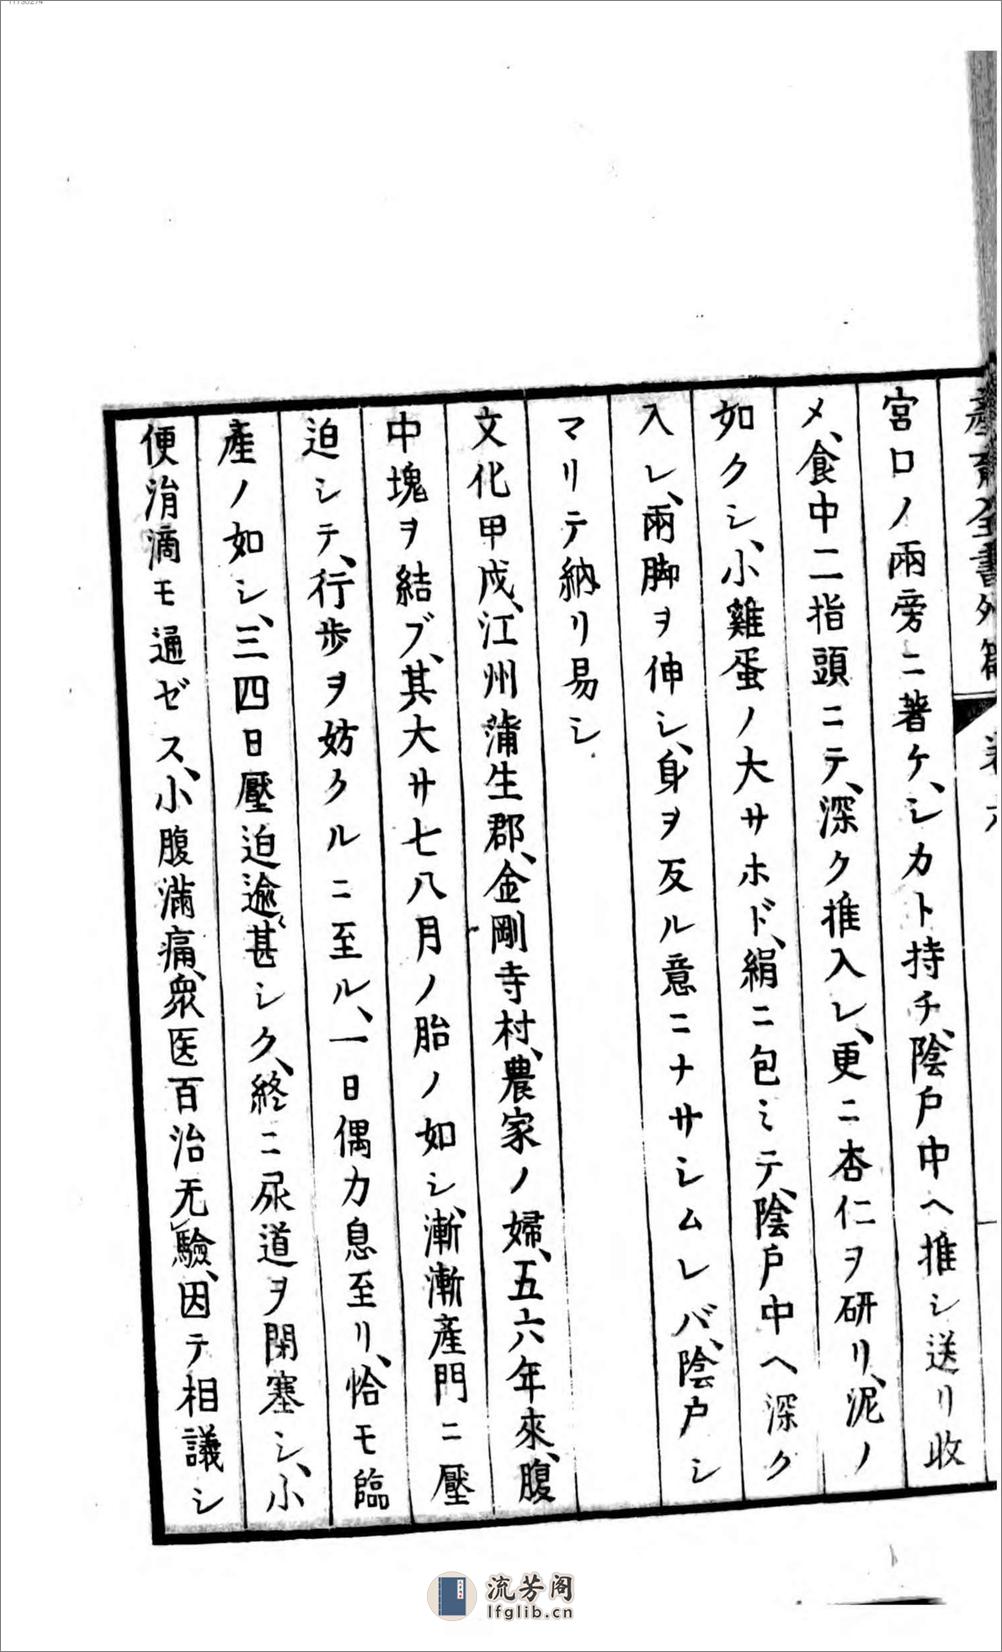 産育全書外篇 卷六
宮口ノ兩旁ニ著ケ、シカト持チ、陰戸中ヘ推シ送リ收
メ、食中二指頭ニテ、深ク推入レ、更ニ杏仁ヲ研リ、泥ノ
如クシ、小雞蛋ノ大サホド、絹ニ包ミテ、陰戸中ヘ深ク
入レ、兩脚ヲ伸シ、身ヲ反ル意ニナサシムレバ、陰戸シ
マリテ納リ易シ
文化甲戌、江州蒲生郡、金剛寺村、農家ノ婦、五六年來、腹
中塊ヲ結ブ、其大サ七八月ノ胎ノ如シ、漸漸産門ニ壓
迫シテ、行歩ヲ妨クルニ至ル、一日偶力息至リ、恰モ臨
産ノ如シ、三四日壓迫逾甚シク、終ニ尿道ヲ閉塞シ、小
便涓滴モ通ゼス、小腹滿痛、衆医百治无驗、因テ相議シ
流芳阁
lfglib.cn